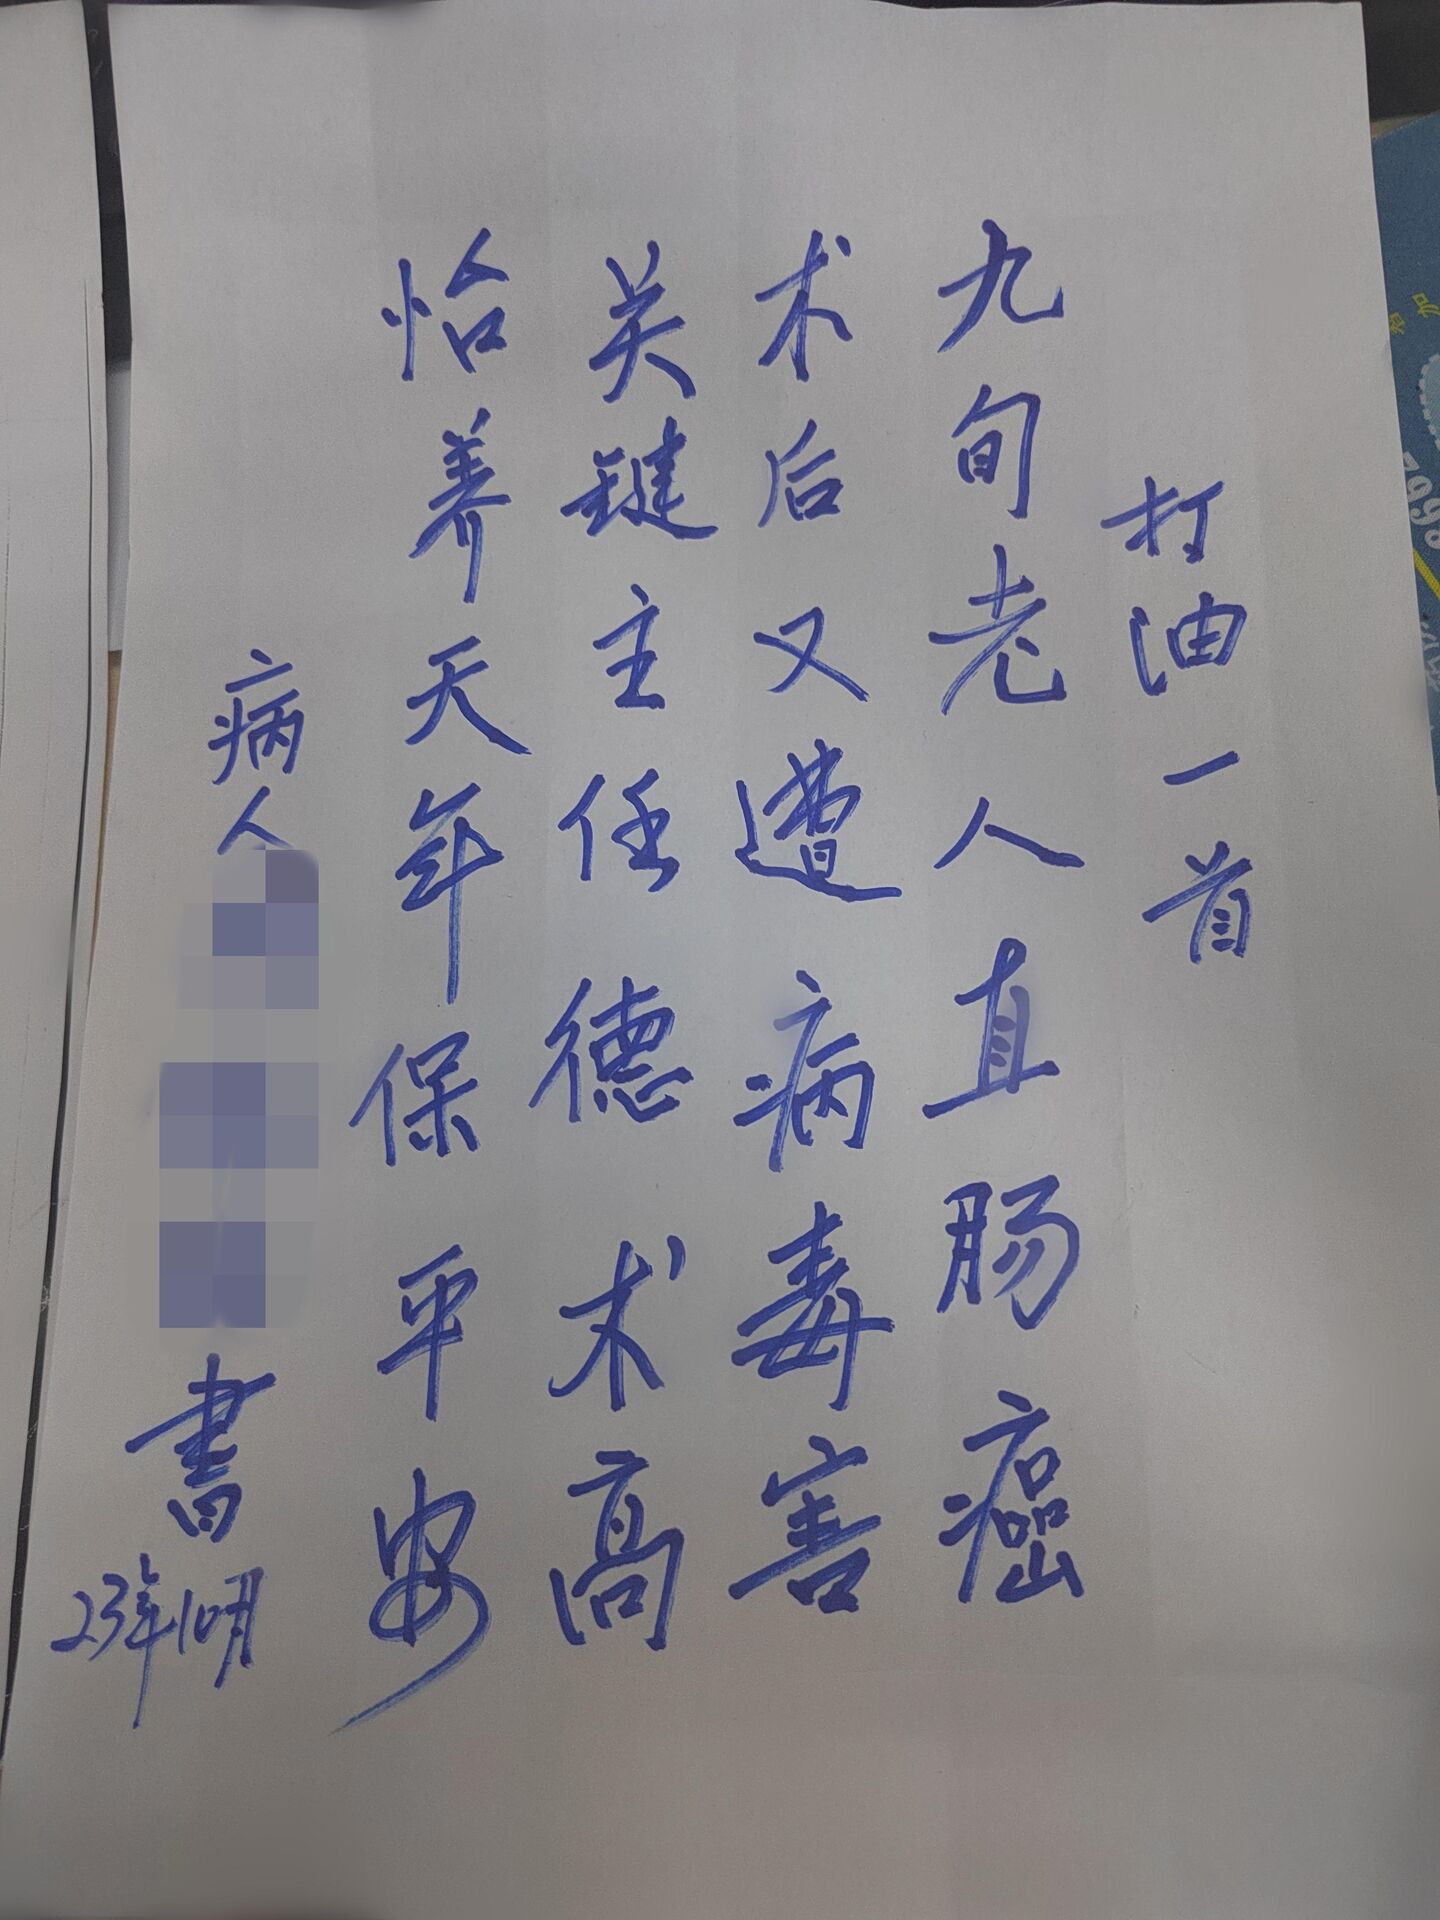 打油一首
九旬老人直肠癌
术后又遭病毒害
关键主任德术高
怡养天年保平安
病人
書
23年10月